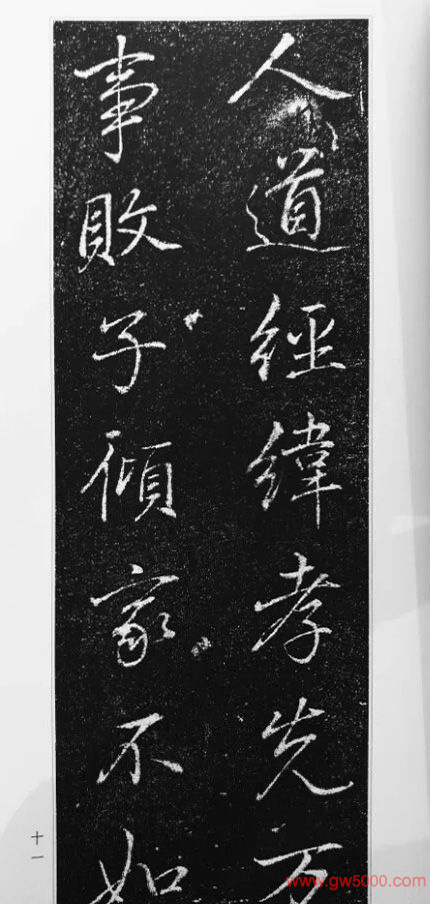 人道經緯孝先万
事敗子傾家不如
十一
www.gw5000.com